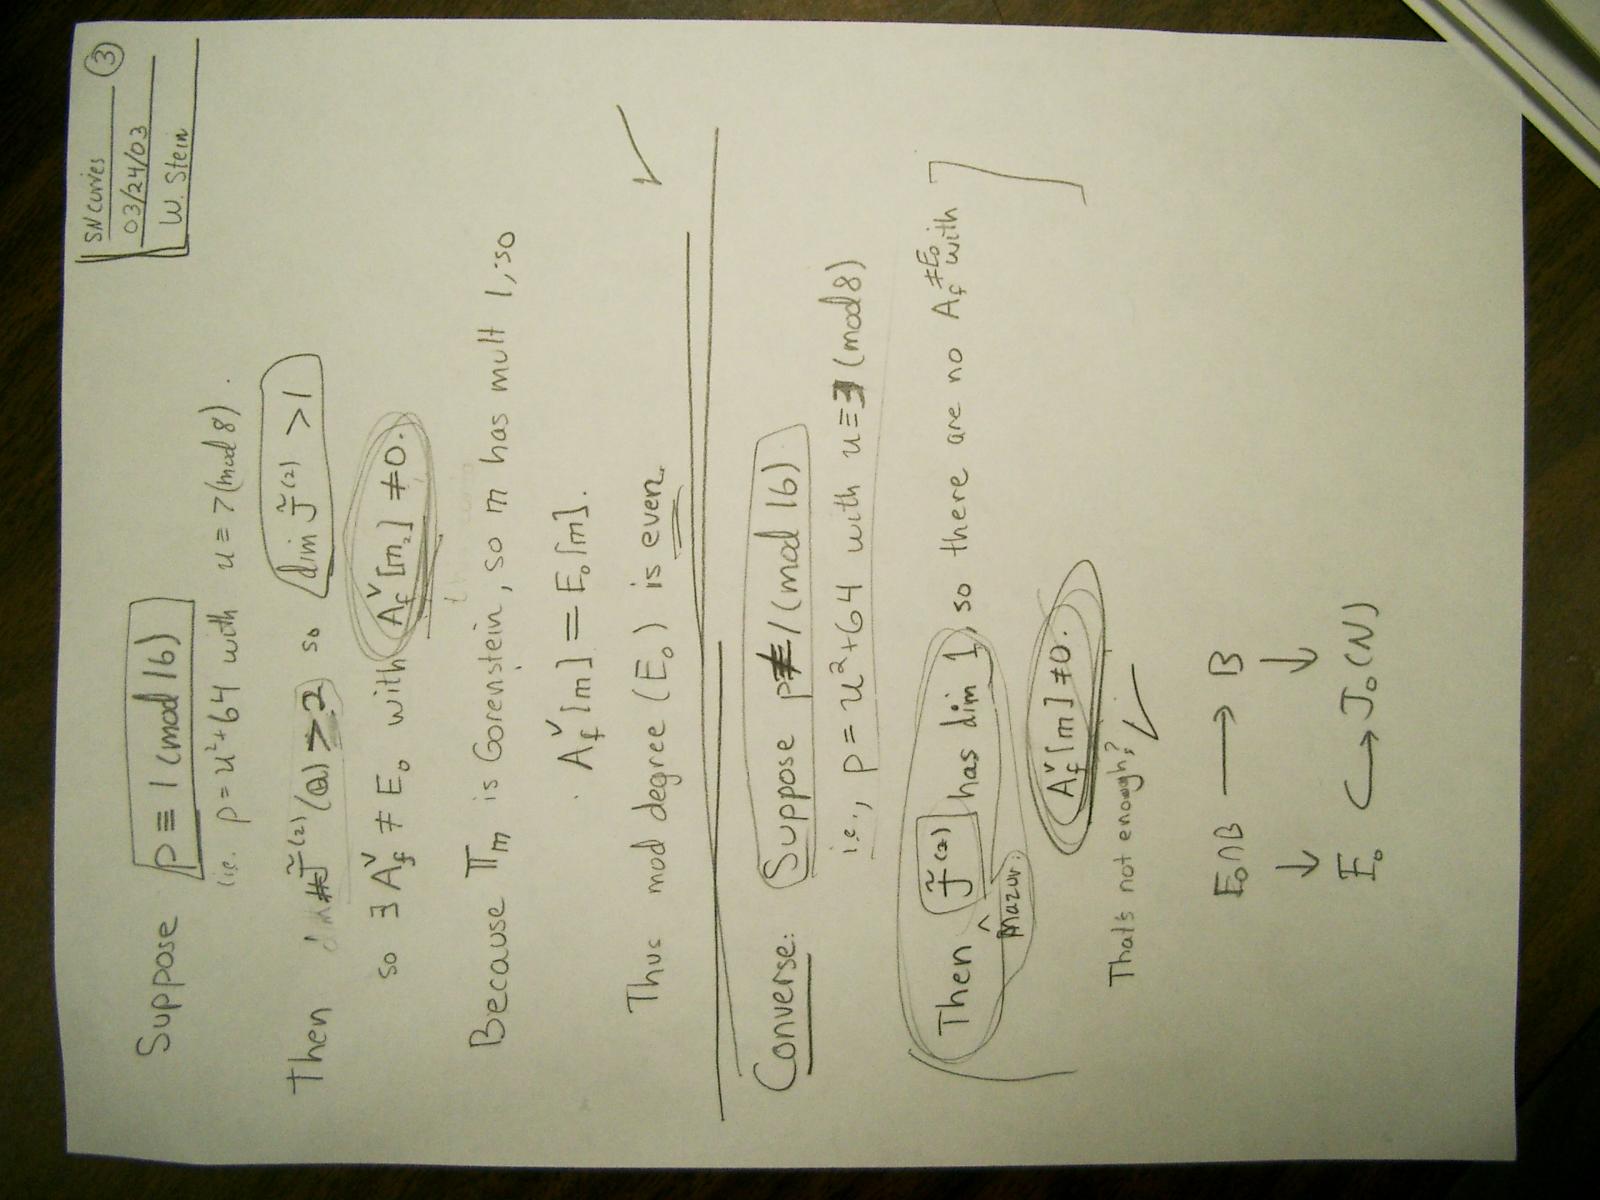 SN curves ③
03/24/03
W. Stein
Suppose p ≡ 1 (mod 16)
i.e. p = u²+64 with u ≡ 7 (mod 8).
Then dim J̃⁽²⁾(Q) > 2 so dim J̃⁽²⁾ > 1
so ∃ A_f^∨ ≠ E₀ with A_f^∨[m₂] ≠ 0.
Because 𝕋_m is Gorenstein, so m has mult 1, so
A_f^∨[m] = E₀[m].
Thus mod degree (E₀) is even ✓
Converse: Suppose p ≢ 1 (mod 16)
i.e., p = u²+64 with u ≡ 3 (mod 8)
Then J̃⁽²⁾ has dim 1, so there are no A_f^{≠E₀} with
^ Mazur.
A_f^∨[m] ≠ 0.
That's not enough? ✓
E₀∩B → B
↓ ↓
E₀ ↪ J₀(N)